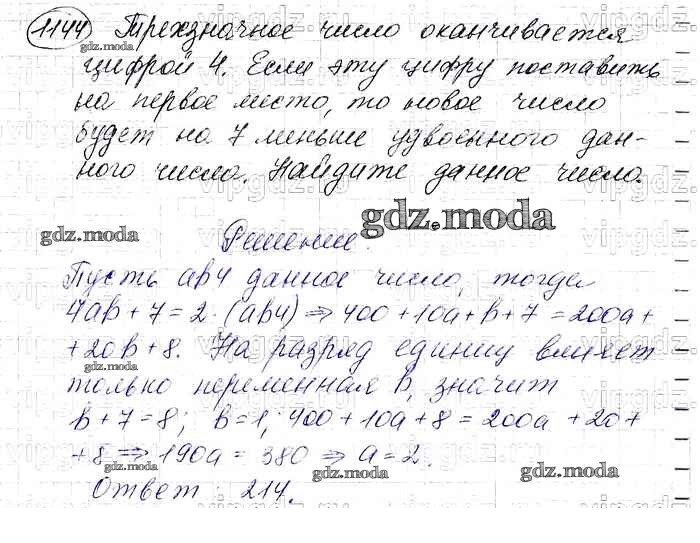 1144 Трехзначное число оканчивается
цифрой 4. Если эту цифру поставить
на первое место, то новое число
будет на 7 меньше удвоенного дан-
ного числа. Найдите данное число.
gdz.moda
Решение.
Пусть ab4 данное число, тогда
4ab + 7 = 2 · (ab4) ⇒ 400 + 10a + b + 7 = 200a +
+ 20b + 8. На разряд единиц влияет
только переменная b, значит
b + 7 = 8; b = 1; 400 + 10a + 8 = 200a + 20 +
+ 8 ⇒ 190a = 380 ⇒ a = 2.
Ответ: 214.